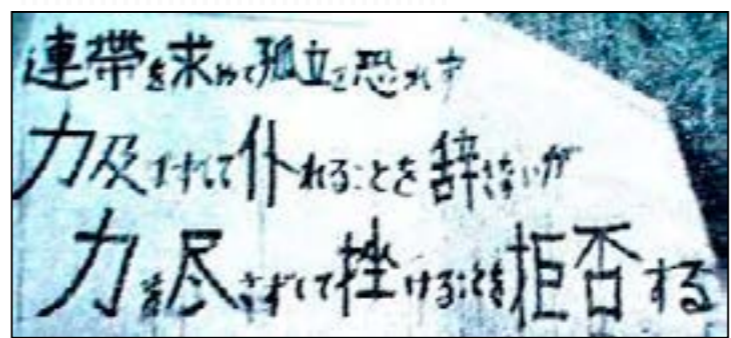 連帯を求めて孤立を恐れず
力及ばずして仆れることを辞さないが
力を尽さずして挫けることを拒否する